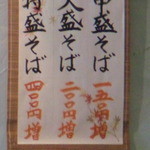 中盛そば 一五〇円増
大盛そば 二〇〇円増
特盛そば 四〇〇円増